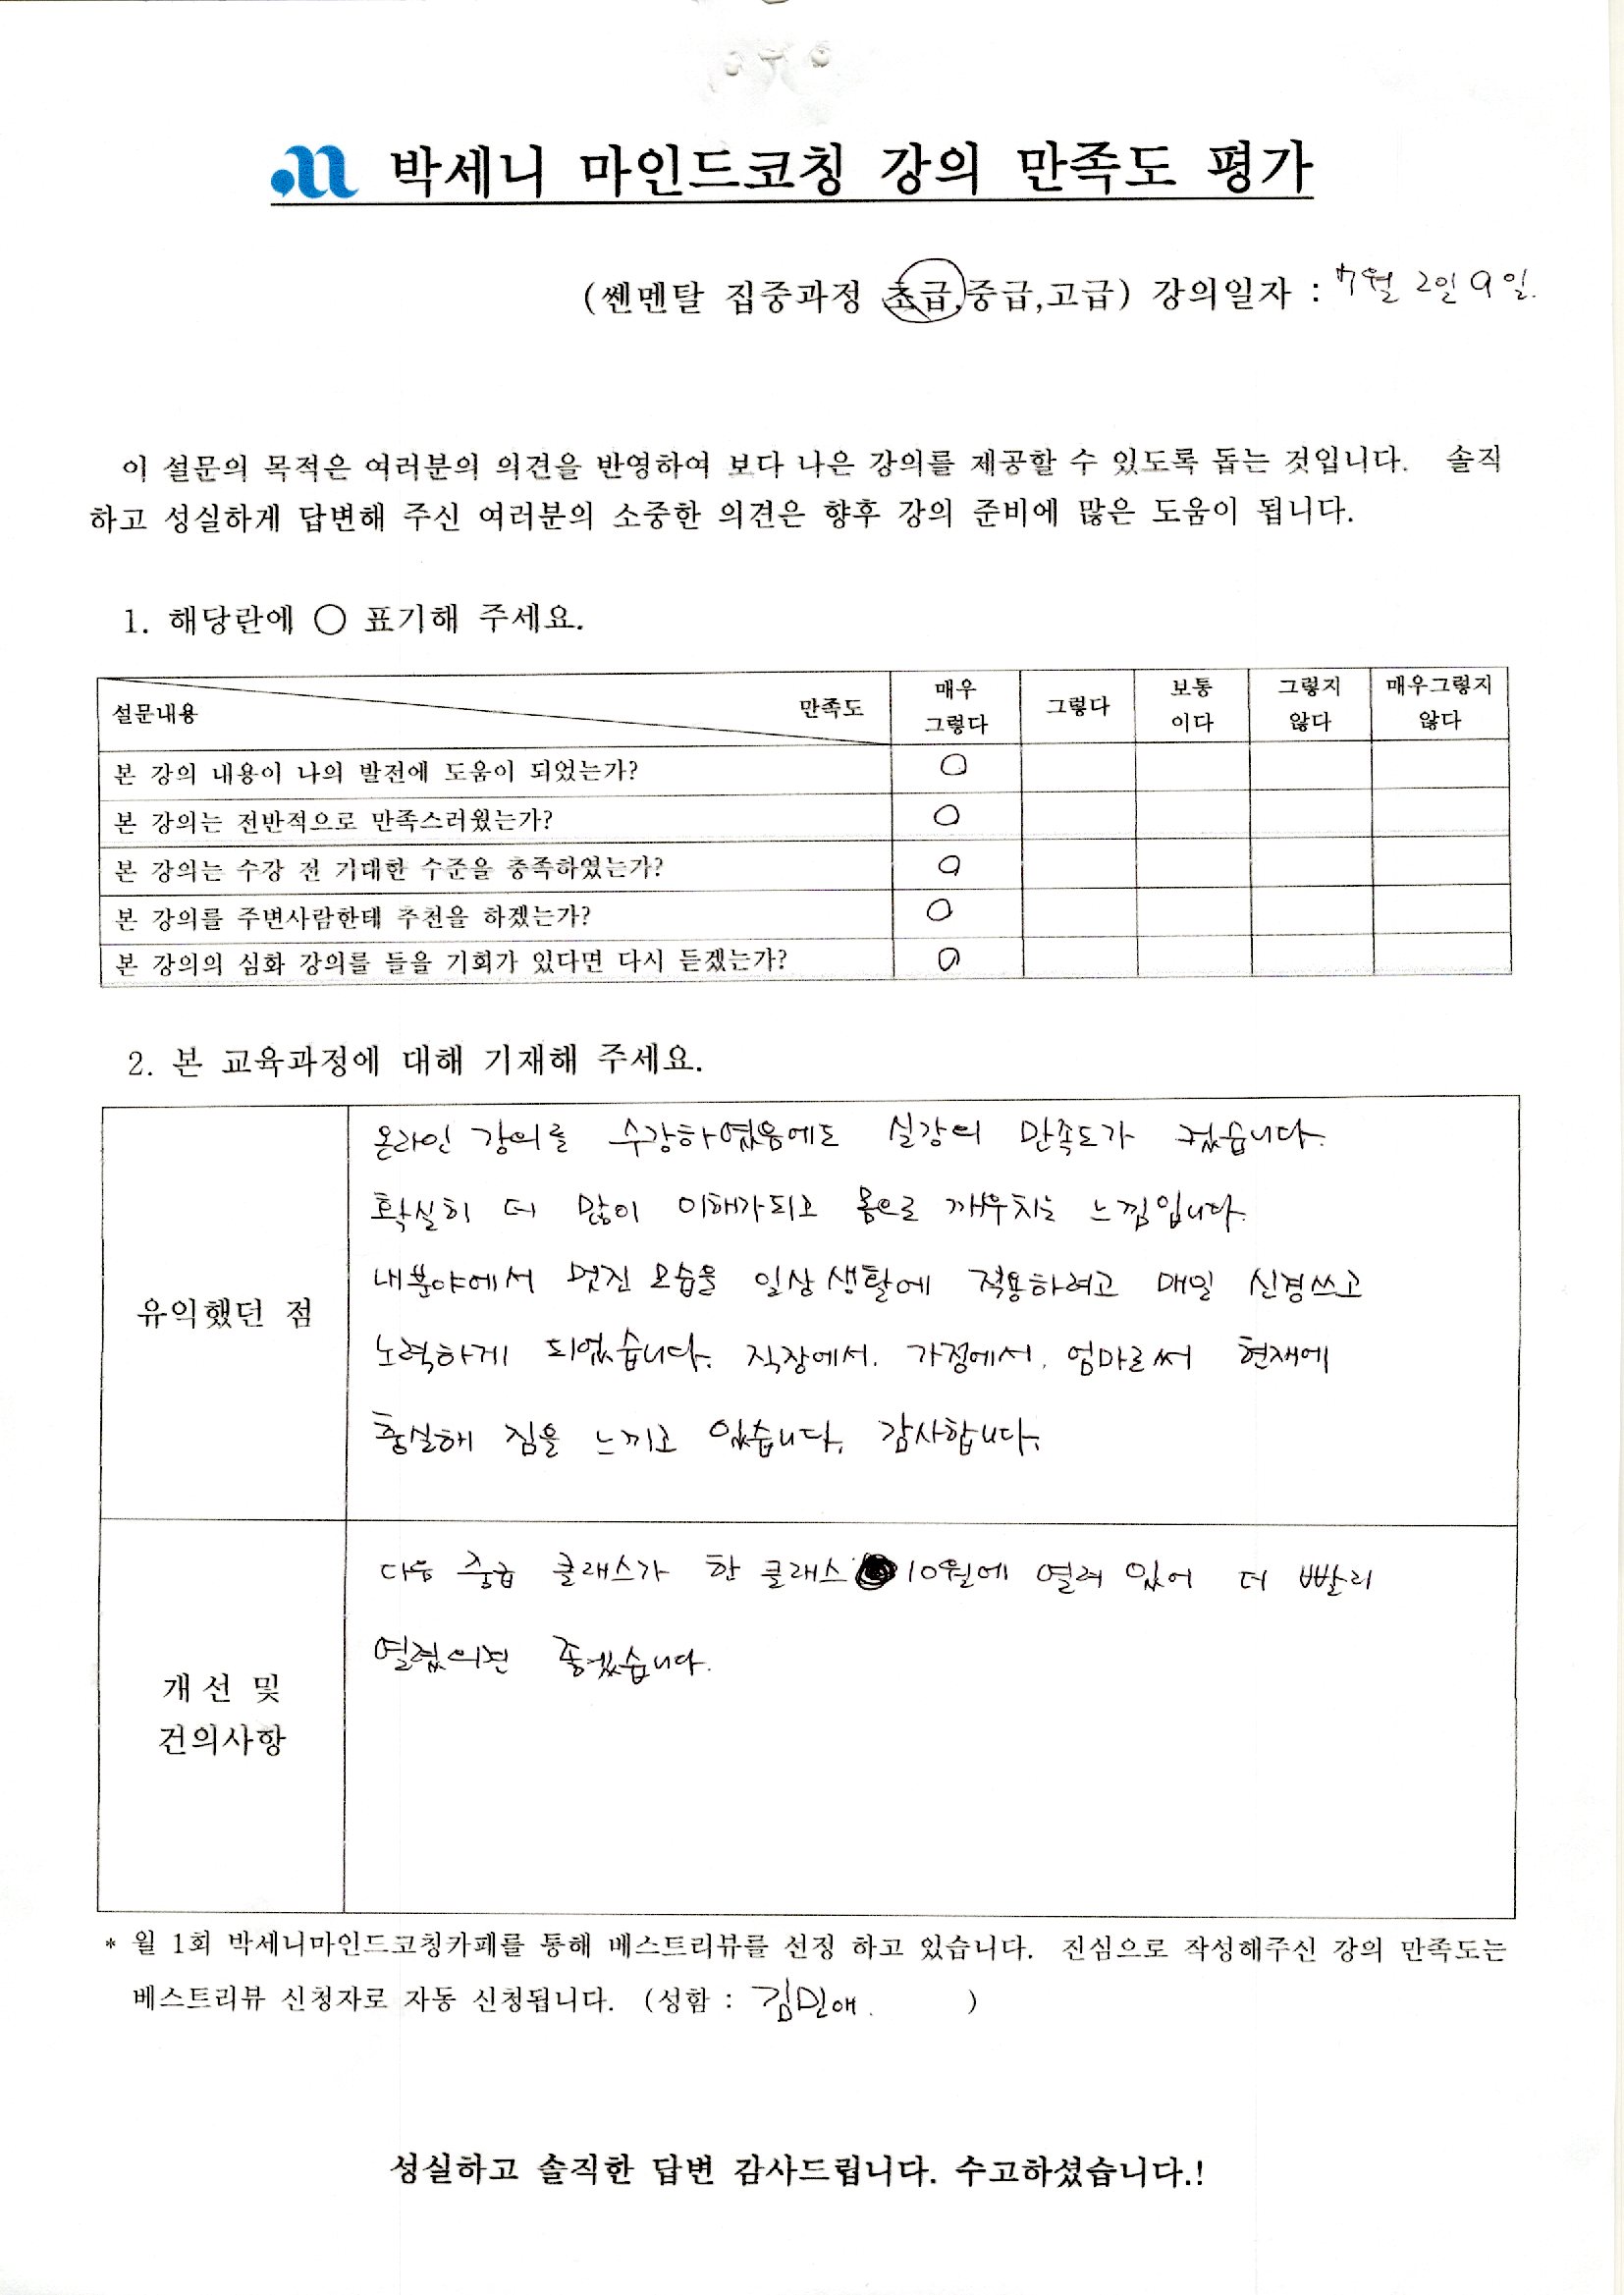 박세니 마인드코칭 강의 만족도 평가
(쎈멘탈 집중과정 초급,중급,고급) 강의일자 : 7월 2일 9일.
이 설문의 목적은 여러분의 의견을 반영하여 보다 나은 강의를 제공할 수 있도록 돕는 것입니다. 솔직
하고 성실하게 답변해 주신 여러분의 소중한 의견은 향후 강의 준비에 많은 도움이 됩니다.
1. 해당란에 ○ 표기해 주세요.
설문내용 만족도 매우 그렇다 그렇다 보통 이다 그렇지 않다 매우그렇지 않다
본 강의 내용이 나의 발전에 도움이 되었는가? ○
본 강의는 전반적으로 만족스러웠는가? ○
본 강의는 수강 전 기대한 수준을 충족하였는가? ○
본 강의를 주변사람한테 추천을 하겠는가? ○
본 강의의 심화 강의를 들을 기회가 있다면 다시 듣겠는가? ○
2. 본 교육과정에 대해 기재해 주세요.
유익했던 점
온라인 강의를 수강하였음에도 실강의 만족도가 컸습니다.
확실히 더 많이 이해가되고 몸으로 깨우치는 느낌입니다.
내분야에서 멋진 모습을 일상생활에 적용하려고 매일 신경쓰고
노력하게 되었습니다. 직장에서. 가정에서. 엄마로써 현재에
충실해 짐을 느끼고 있습니다. 감사합니다.
개선 및
건의사항
다음 중급 클래스가 한 클래스 10월에 열려 있어 더 빨리
열렸으면 좋겠습니다.
* 월 1회 박세니마인드코칭카페를 통해 베스트리뷰를 선정 하고 있습니다. 진심으로 작성해주신 강의 만족도는
베스트리뷰 신청자로 자동 신청됩니다. (성함 : 김민애. )
성실하고 솔직한 답변 감사드립니다. 수고하셨습니다.!